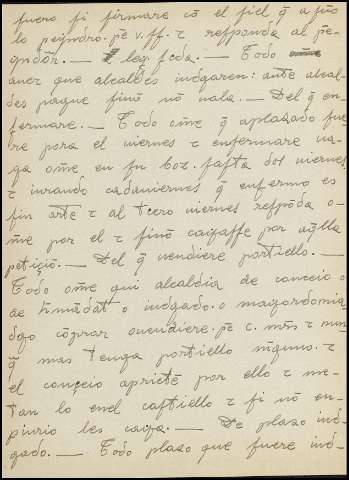 fuero si firmare cō el fiel q̄ a juº
lo peyndro. pe v. ff. τ responda al pe-
yndor̄. — leg. fcda. — Todo
aver que alcaldes iudgaren: ante alcal-
des pague sinō nō vala. — Del q̄ en-
fermare. — Todo ome q̄ aplazado fue
re pora el viernes τ enfermare va-
ya ome en su boz. fasta dos viernes
τ iurando cada viernes q̄ enfermo es
sin arte τ al tcero viernes respōda o-
me por el τ sinō cayasse por aq̄lla
petiçiō. — Del q̄ vendiere portiello. —
Todo ome qui alcaldia de conceio o
de h̄mādat o iudgado. o mayordomia
dgo cōprar o vendiere. pe c. mrs τ nun
q̄ mas tenga portiello ninguno. τ
el conçeio apriete por ello τ me-
tan lo en el castiello τ si nō en-
piurio les caya. — De plazo iud-
gado. — Todo plazo que fuere iud-